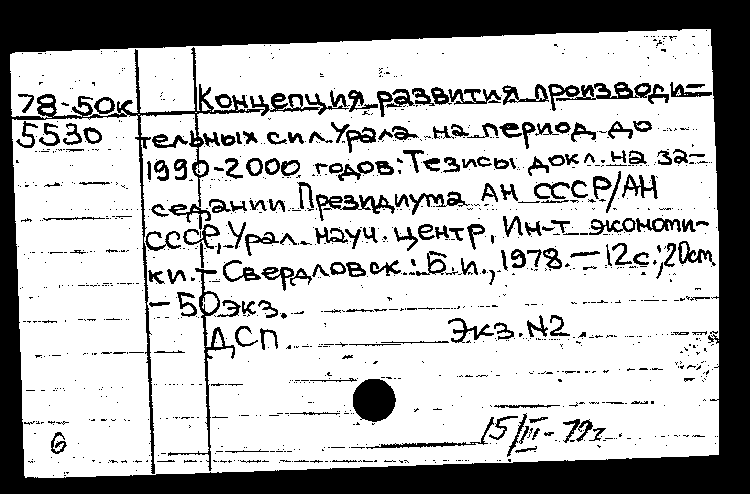 78-50к Концепция развития производи-
5530 тельных сил Урала на период до
1990-2000 годов: Тезисы докл. на за-
седании Президиума АН СССР/АН
СССР, Урал. науч. центр, Ин-т экономи-
ки. - Свердловск: Б.и., 1978. - 12с.; 20см
- 50экз.
ДСП. Экз. N2.
15/III-79г.
6